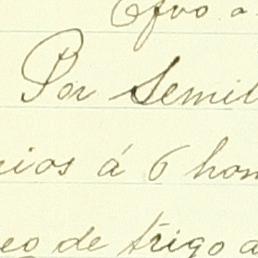 Por Semil
rios á 6 hom
eo de trigo a